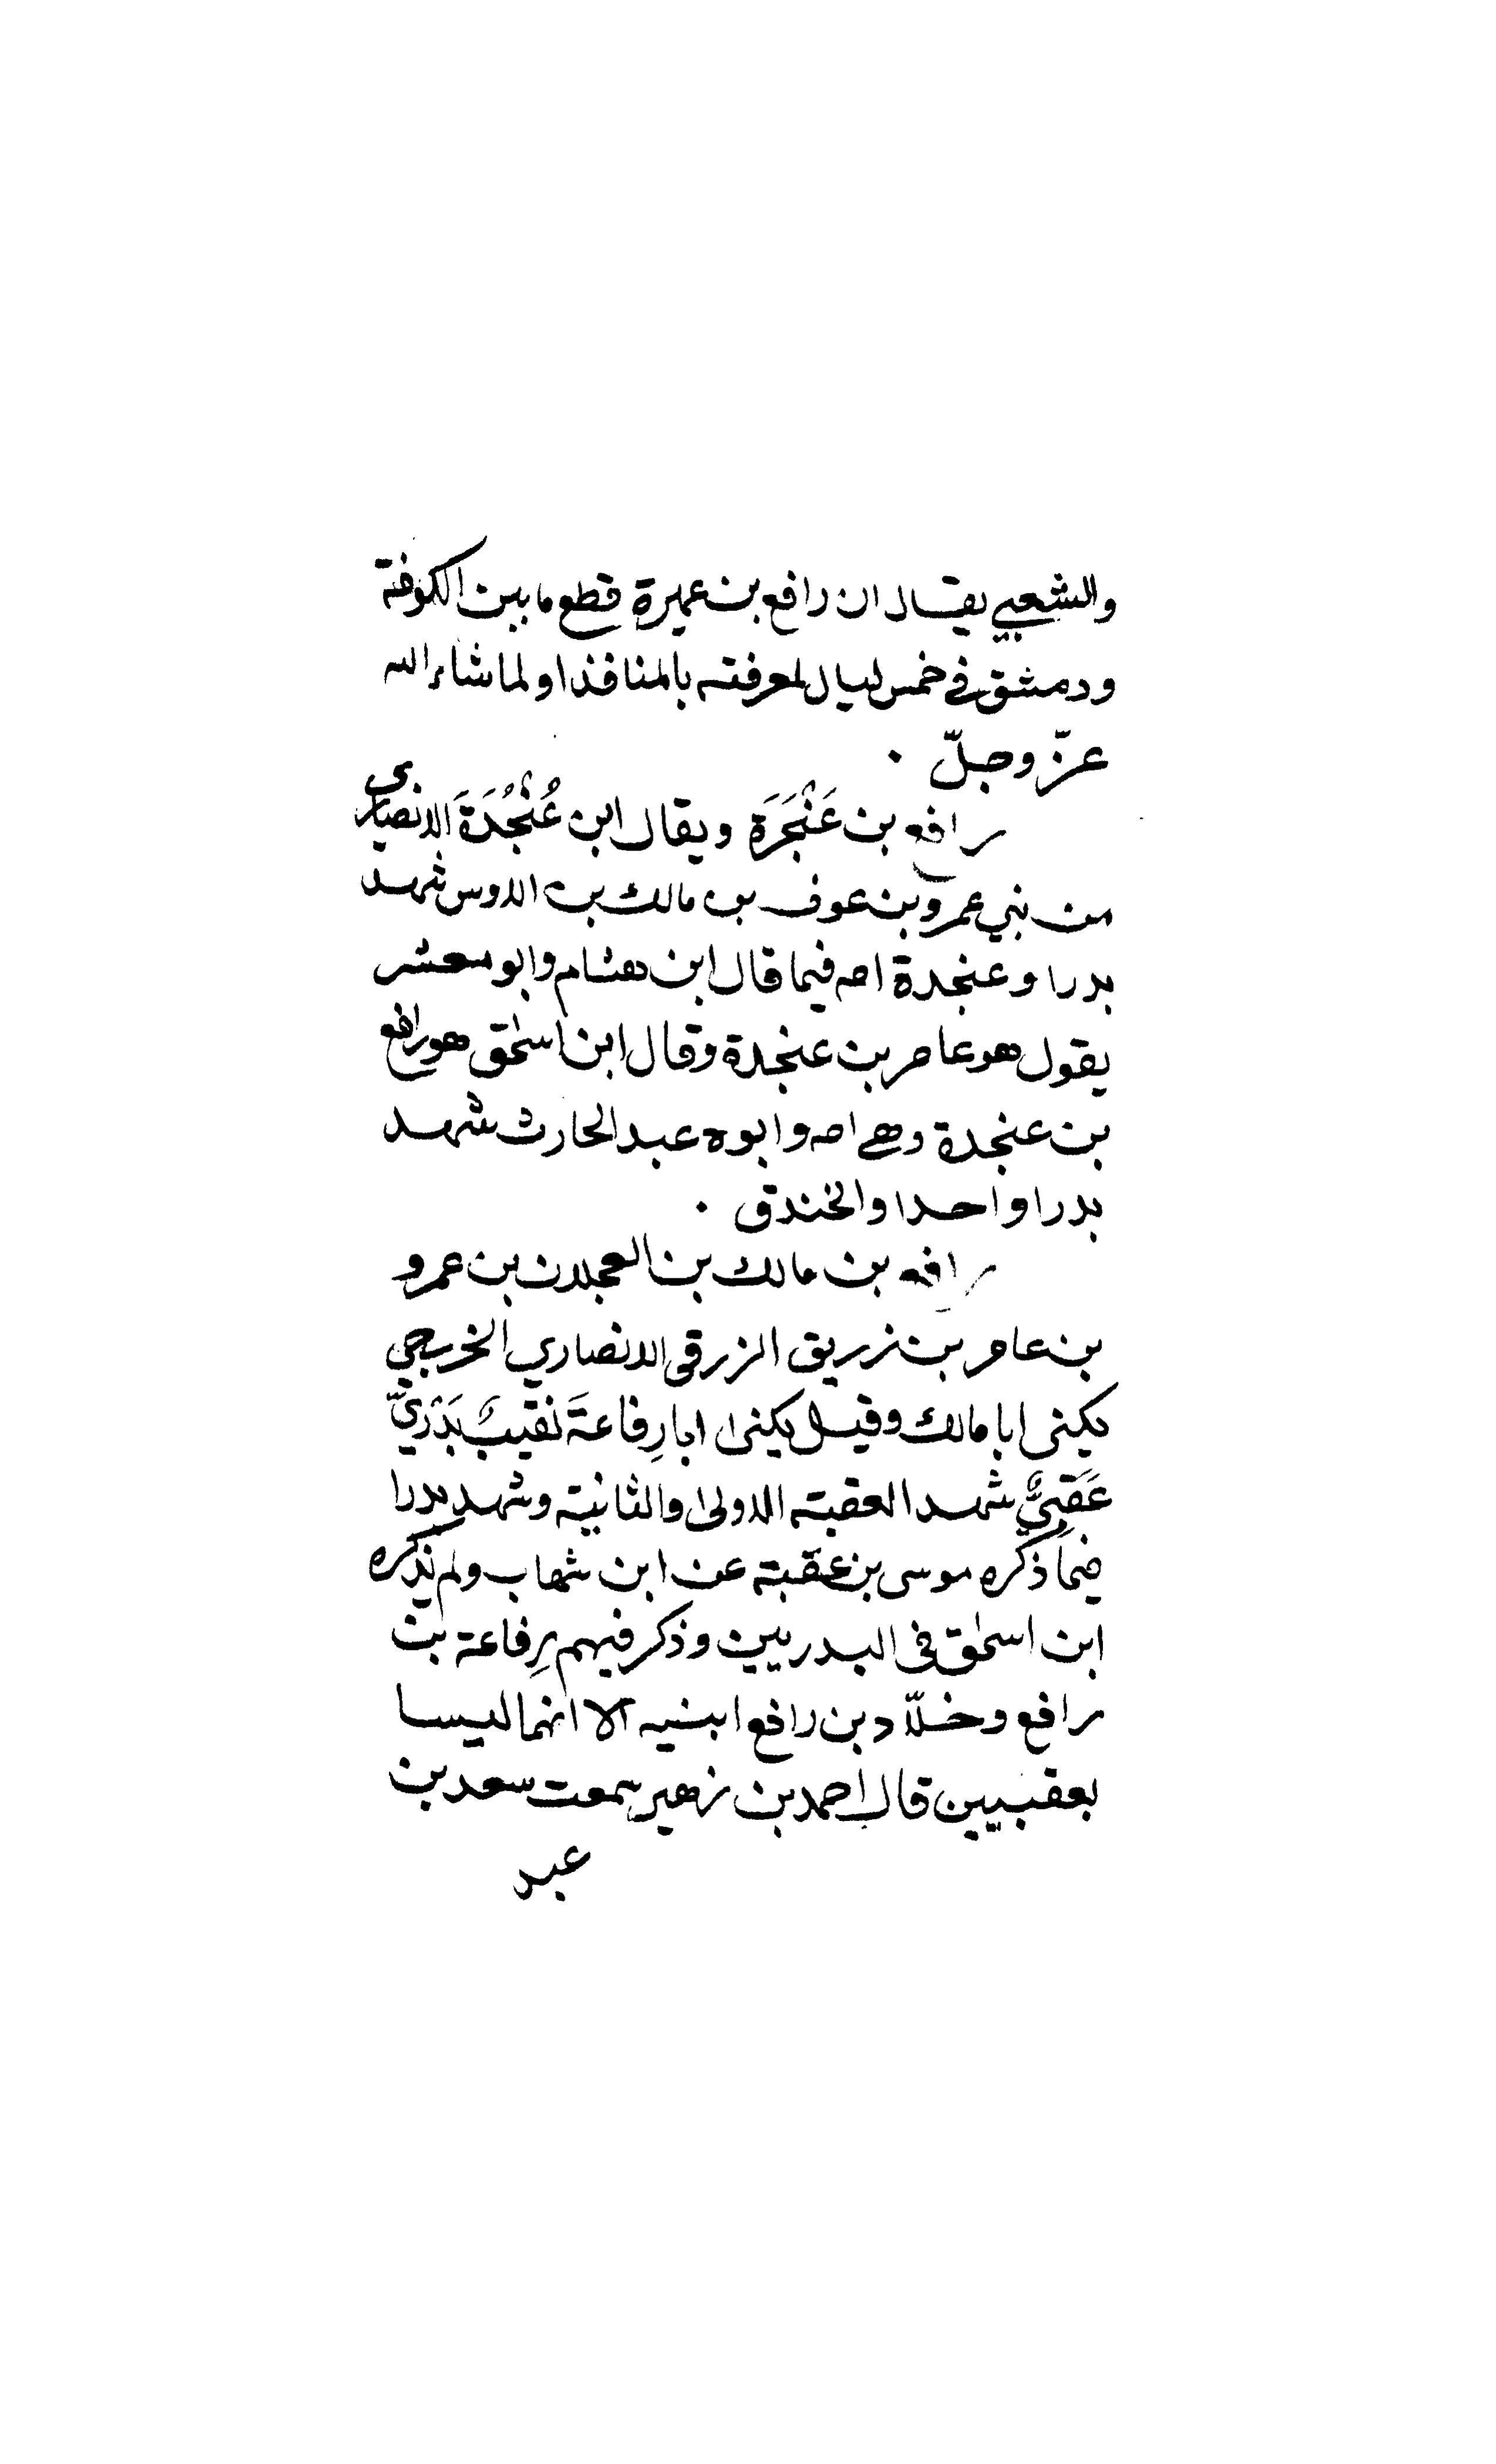 والشعبي يقال ان رافع بن عميرة قطع ما بين الكوفة
ودمشق في خمس ليال لمعرفته بالمنافذ او لما شاء الله
عزّ وجلّ .
رافع بن عَنْجَرَة ويقال ابن عُنْجُدَةَ الانصاري
من بني عمرو بن عوف بن مالك بن الاوس شهد
بدرا وعنجدة امه فيما قال ابن هشام وابو معشر
يقول هو عامر بن عنجدة وقال ابن اسحق هو رافع
بن عنجدة وهي امه وابوه عبد الحارث شهد
بدرا واحدا والخندق .
رافع بن مالك بن العجلان بن عمرو
بن عامر بن زريق الزرقي الانصاري الخزرجي
يكنى ابا مالك وقيل يكنى ابا رِفاعةَ نقيبٌ بَدْرَيّ
عَقَبيٌّ شهد العقبة الاولى والثانية وشهد بدرا
فيما ذكره موسى بن عقبة عن ابن شهاب ولم يذكره
ابن اسحق في البدريين وذكر فيهم رِفاعة بن
رافع وخلّاد بن رافع ابنيه الا انهما ليسا
بعقبيين قال احمد بن زهير سمعت سعد بن
عبد